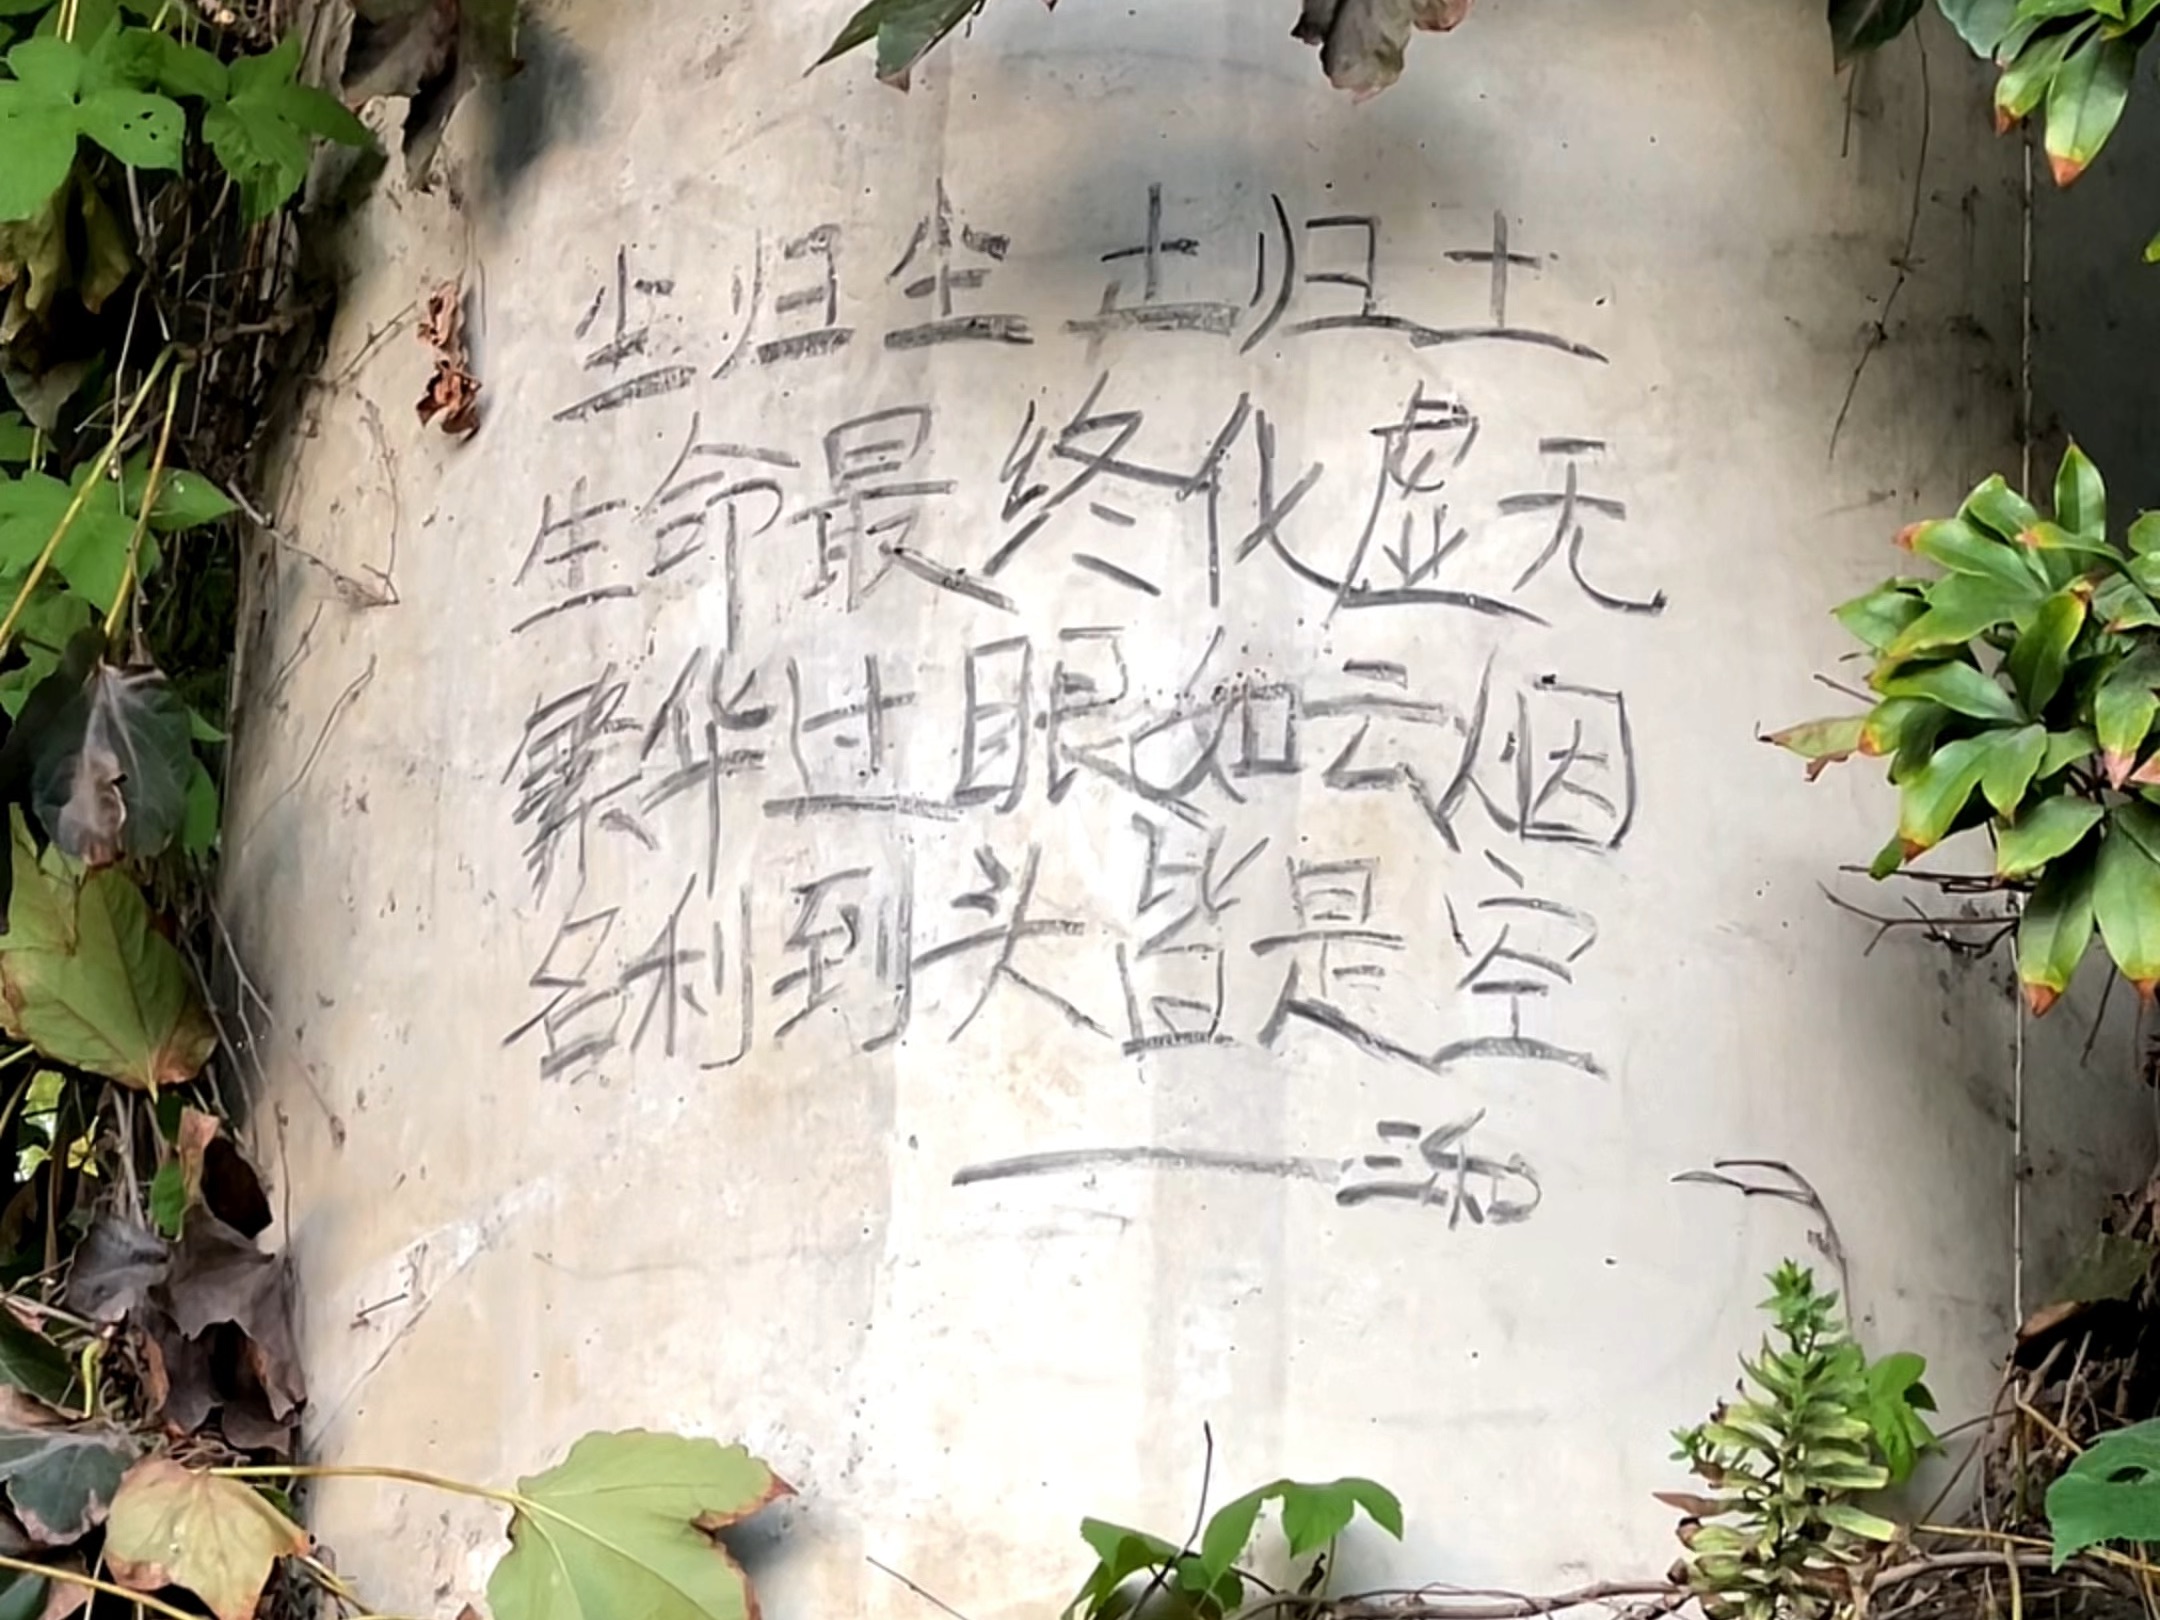 尘归尘土归土
生命最终化虚无
繁华过眼如云烟
名利到头皆是空
——三和